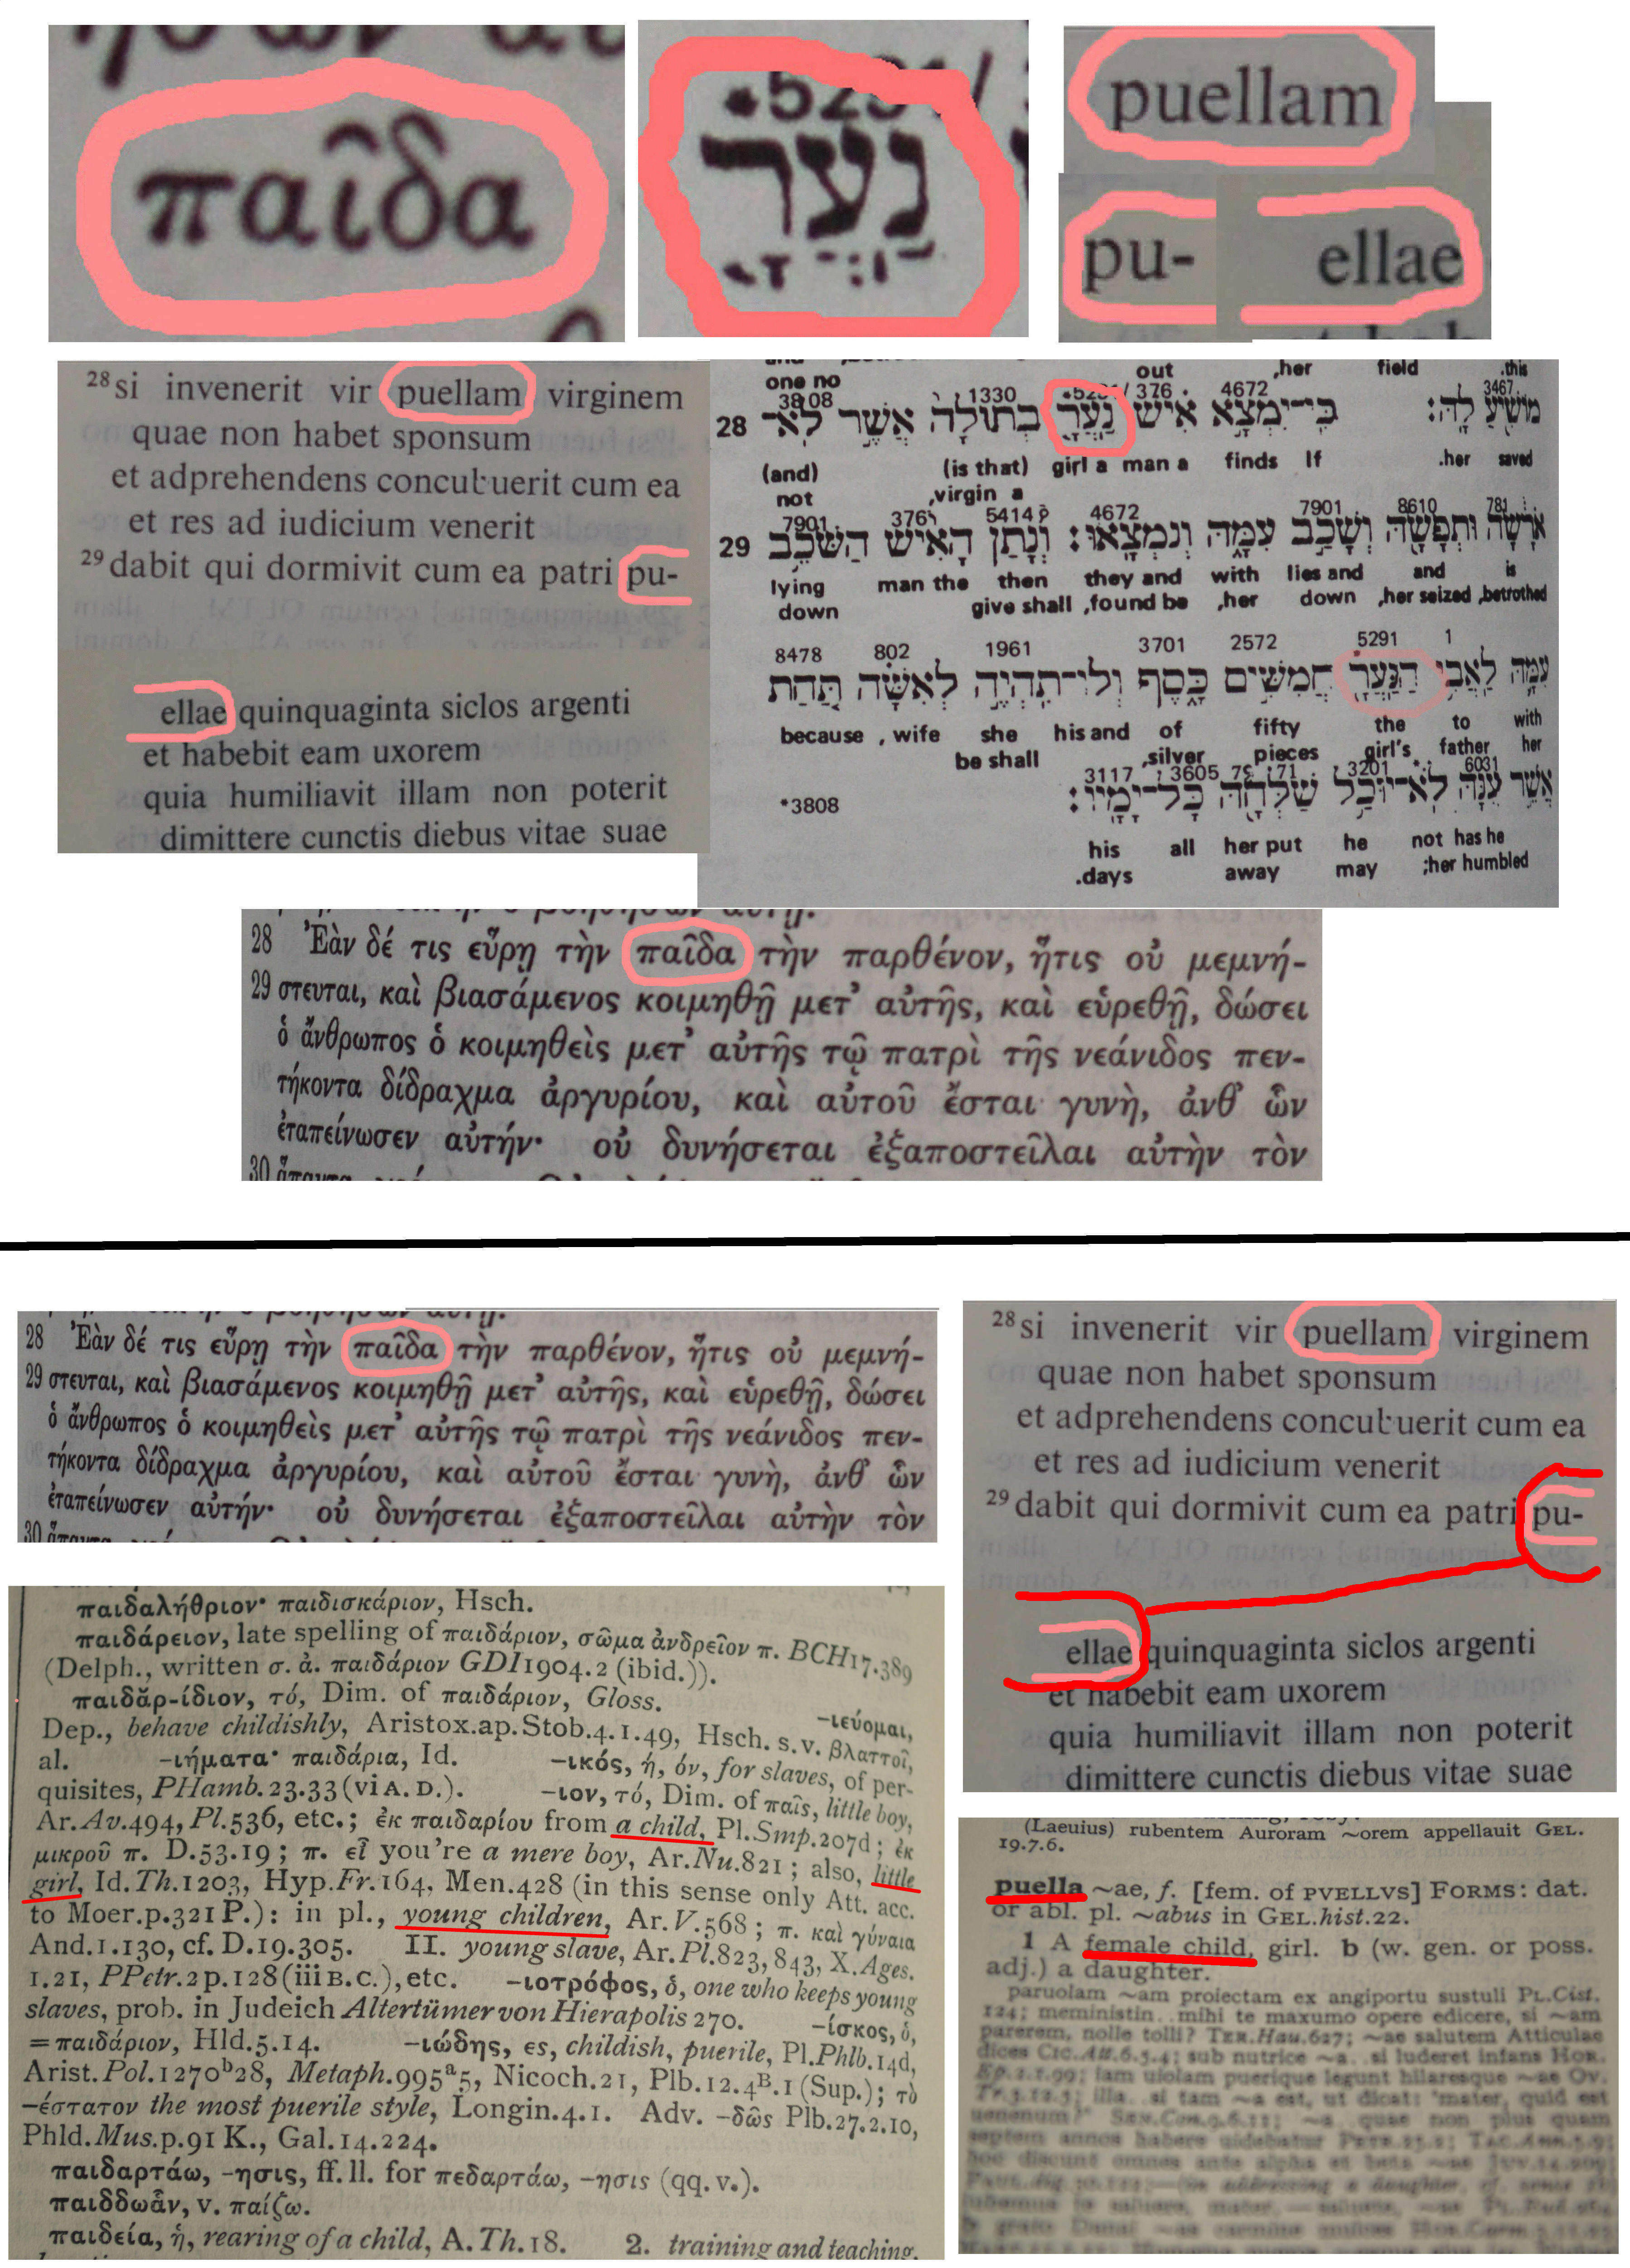 παῖδα
נַעֲרָ
puellam
pu-
ellae
28 si invenerit vir puellam virginem
quae non habet sponsum
et adprehendens concubuerit cum ea
et res ad iudicium venerit
29 dabit qui dormivit cum ea patri pu-
ellae quinquaginta siclos argenti
et habebit eam uxorem
quia humiliavit illam non poterit
dimittere cunctis diebus vitae suae
one no out ,her field .this
3808 1330 376 4672 3467
28 מוֹשִׁיעַ לָהּ: כִּי־יִמְצָא אִישׁ נַעֲרָ בְתוּלָה אֲשֶׁר לֹא־
(and) (is that) girl a man a finds If .her saved
not ,virgin a
7901 376 5414 4672 7901 8610 781
29 אֹרָשָׂה וּתְפָשָׂהּ וְשָׁכַב עִמָּהּ וְנִמְצָאוּ: וְנָתַן הָאִישׁ הַשֹּׁכֵב
lying man the then they and with lies and and is
down give shall ,found be ,her down ,her seized ,betrothed
8478 802 1961 3701 2572 5291 1
עִמָּהּ לַאֲבִי הַנַּעֲרָ חֲמִשִּׁים כָּסֶף וְלוֹ־תִהְיֶה לְאִשָּׁה תַּחַת
because , wife she his and of fifty the to with
be shall ,silver pieces girl's father her
3117 3605 7971 3201 6031
אֲשֶׁר עִנָּהּ לֹא־יוּכַל שַׁלְּחָהּ כָּל־יָמָיו:
*3808
his all her put he not has he
.days away may ;her humbled
28 Ἐὰν δέ τις εὕρῃ τὴν παῖδα τὴν παρθένον, ἥτις οὐ μεμνή-
29 στευται, καὶ βιασάμενος κοιμηθῇ μετ' αὐτῆς, καὶ εὑρεθῇ, δώσει
ὁ ἄνθρωπος ὁ κοιμηθεὶς μετ' αὐτῆς τῷ πατρὶ τῆς νεάνιδος πεν-
τήκοντα δίδραχμα ἀργυρίου, καὶ αὐτοῦ ἔσται γυνὴ, ἀνθ' ὧν
ἐταπείνωσεν αὐτήν· οὐ δυνήσεται ἐξαποστεῖλαι αὐτὴν τὸν
30
28 Ἐὰν δέ τις εὕρῃ τὴν παῖδα τὴν παρθένον, ἥτις οὐ μεμνή-
29 στευται, καὶ βιασάμενος κοιμηθῇ μετ' αὐτῆς, καὶ εὑρεθῇ, δώσει
ὁ ἄνθρωπος ὁ κοιμηθεὶς μετ' αὐτῆς τῷ πατρὶ τῆς νεάνιδος πεν-
τήκοντα δίδραχμα ἀργυρίου, καὶ αὐτοῦ ἔσται γυνὴ, ἀνθ' ὧν
ἐταπείνωσεν αὐτήν· οὐ δυνήσεται ἐξαποστεῖλαι αὐτὴν τὸν
30
28 si invenerit vir puellam virginem
quae non habet sponsum
et adprehendens concubuerit cum ea
et res ad iudicium venerit
29 dabit qui dormivit cum ea patri pu-
ellae quinquaginta siclos argenti
et habebit eam uxorem
quia humiliavit illam non poterit
dimittere cunctis diebus vitae suae
παιδαλήθριον· παιδισκάριον, Hsch.
παιδάρειον, late spelling of παιδάριον, σῶμα ἀνδρεῖον π. BCH17.389
(Delph., written σ. ἀ. παιδάριον GDI1904.2 (ibid.)).
παιδᾰρ-ίδιον, τό, Dim. of παιδάριον, Gloss. –ιεύομαι,
Dep., behave childishly, Aristox.ap.Stob.4.1.49, Hsch. s.v. βλαττοῖ,
al. –ιήματα· παιδάρια, Id. –ικός, ή, όν, for slaves, of per-
quisites, PHamb.23.33 (vi A.D.). –ιον, τό, Dim. of παῖς, little boy,
Ar.Av.494, Pl.536, etc.; ἐκ παιδαρίου from a child, Pl.Smp.207d; ἐκ
μικροῦ π. D.53.19; π. εἶ you're a mere boy, Ar.Nu.821; also, little
girl, Id.Th.1203, Hyp.Fr.164, Men.428 (in this sense only Att. acc.
to Moer.p.321 P.): in pl., young children, Ar.V.568; π. καὶ γύναια
And.1.130, cf. D.19.305. II. young slave, Ar.Pl.823, 843, X.Ages.
1.21, PPetr.2p.128 (iii B.C.), etc. –ιοτρόφος, ὁ, one who keeps young
slaves, prob. in Judeich Altertümer von Hierapolis 270. –ίσκος, ὁ,
= παιδάριον, Hld.5.14. –ιώδης, ες, childish, puerile, Pl.Phlb.14d,
Arist.Pol.1270ᵇ28, Metaph.995ᵃ5, Nicoch.21, Plb.12.4ᴮ.1 (Sup.); τὸ
–έστατον the most puerile style, Longin.4.1. Adv. –δῶς Plb.27.2.10,
Phld.Mus.p.91 K., Gal.14.224.
παιδαρτάω, –ησις, ff. ll. for πεδαρτάω, –ησις (qq. v.).
παιδδωἄν, v. παίζω.
παιδεία, ἡ, rearing of a child, A.Th.18. 2. training and teaching,
(Laeuius) rubentem Auroram ~orem appellauit GEL.
19.7.6.
puella ~ae, f. [fem. of PVELLVS] FORMS: dat.
or abl. pl. ~abus in GEL.hist.22.
1 A female child, girl. b (w. gen. or poss.
adj.) a daughter.
paruolam ~am proiectam ex angiportu sustuli PL.Cist.
124; meministin.. mihi te maxumo opere edicere, si ~am
parerem, nolle tolli? TER.Hau.627; ~ae salutem Atticulae
dices CIC.Att.6.5.4; sub nutrice ~a. si luderet infans HOR.